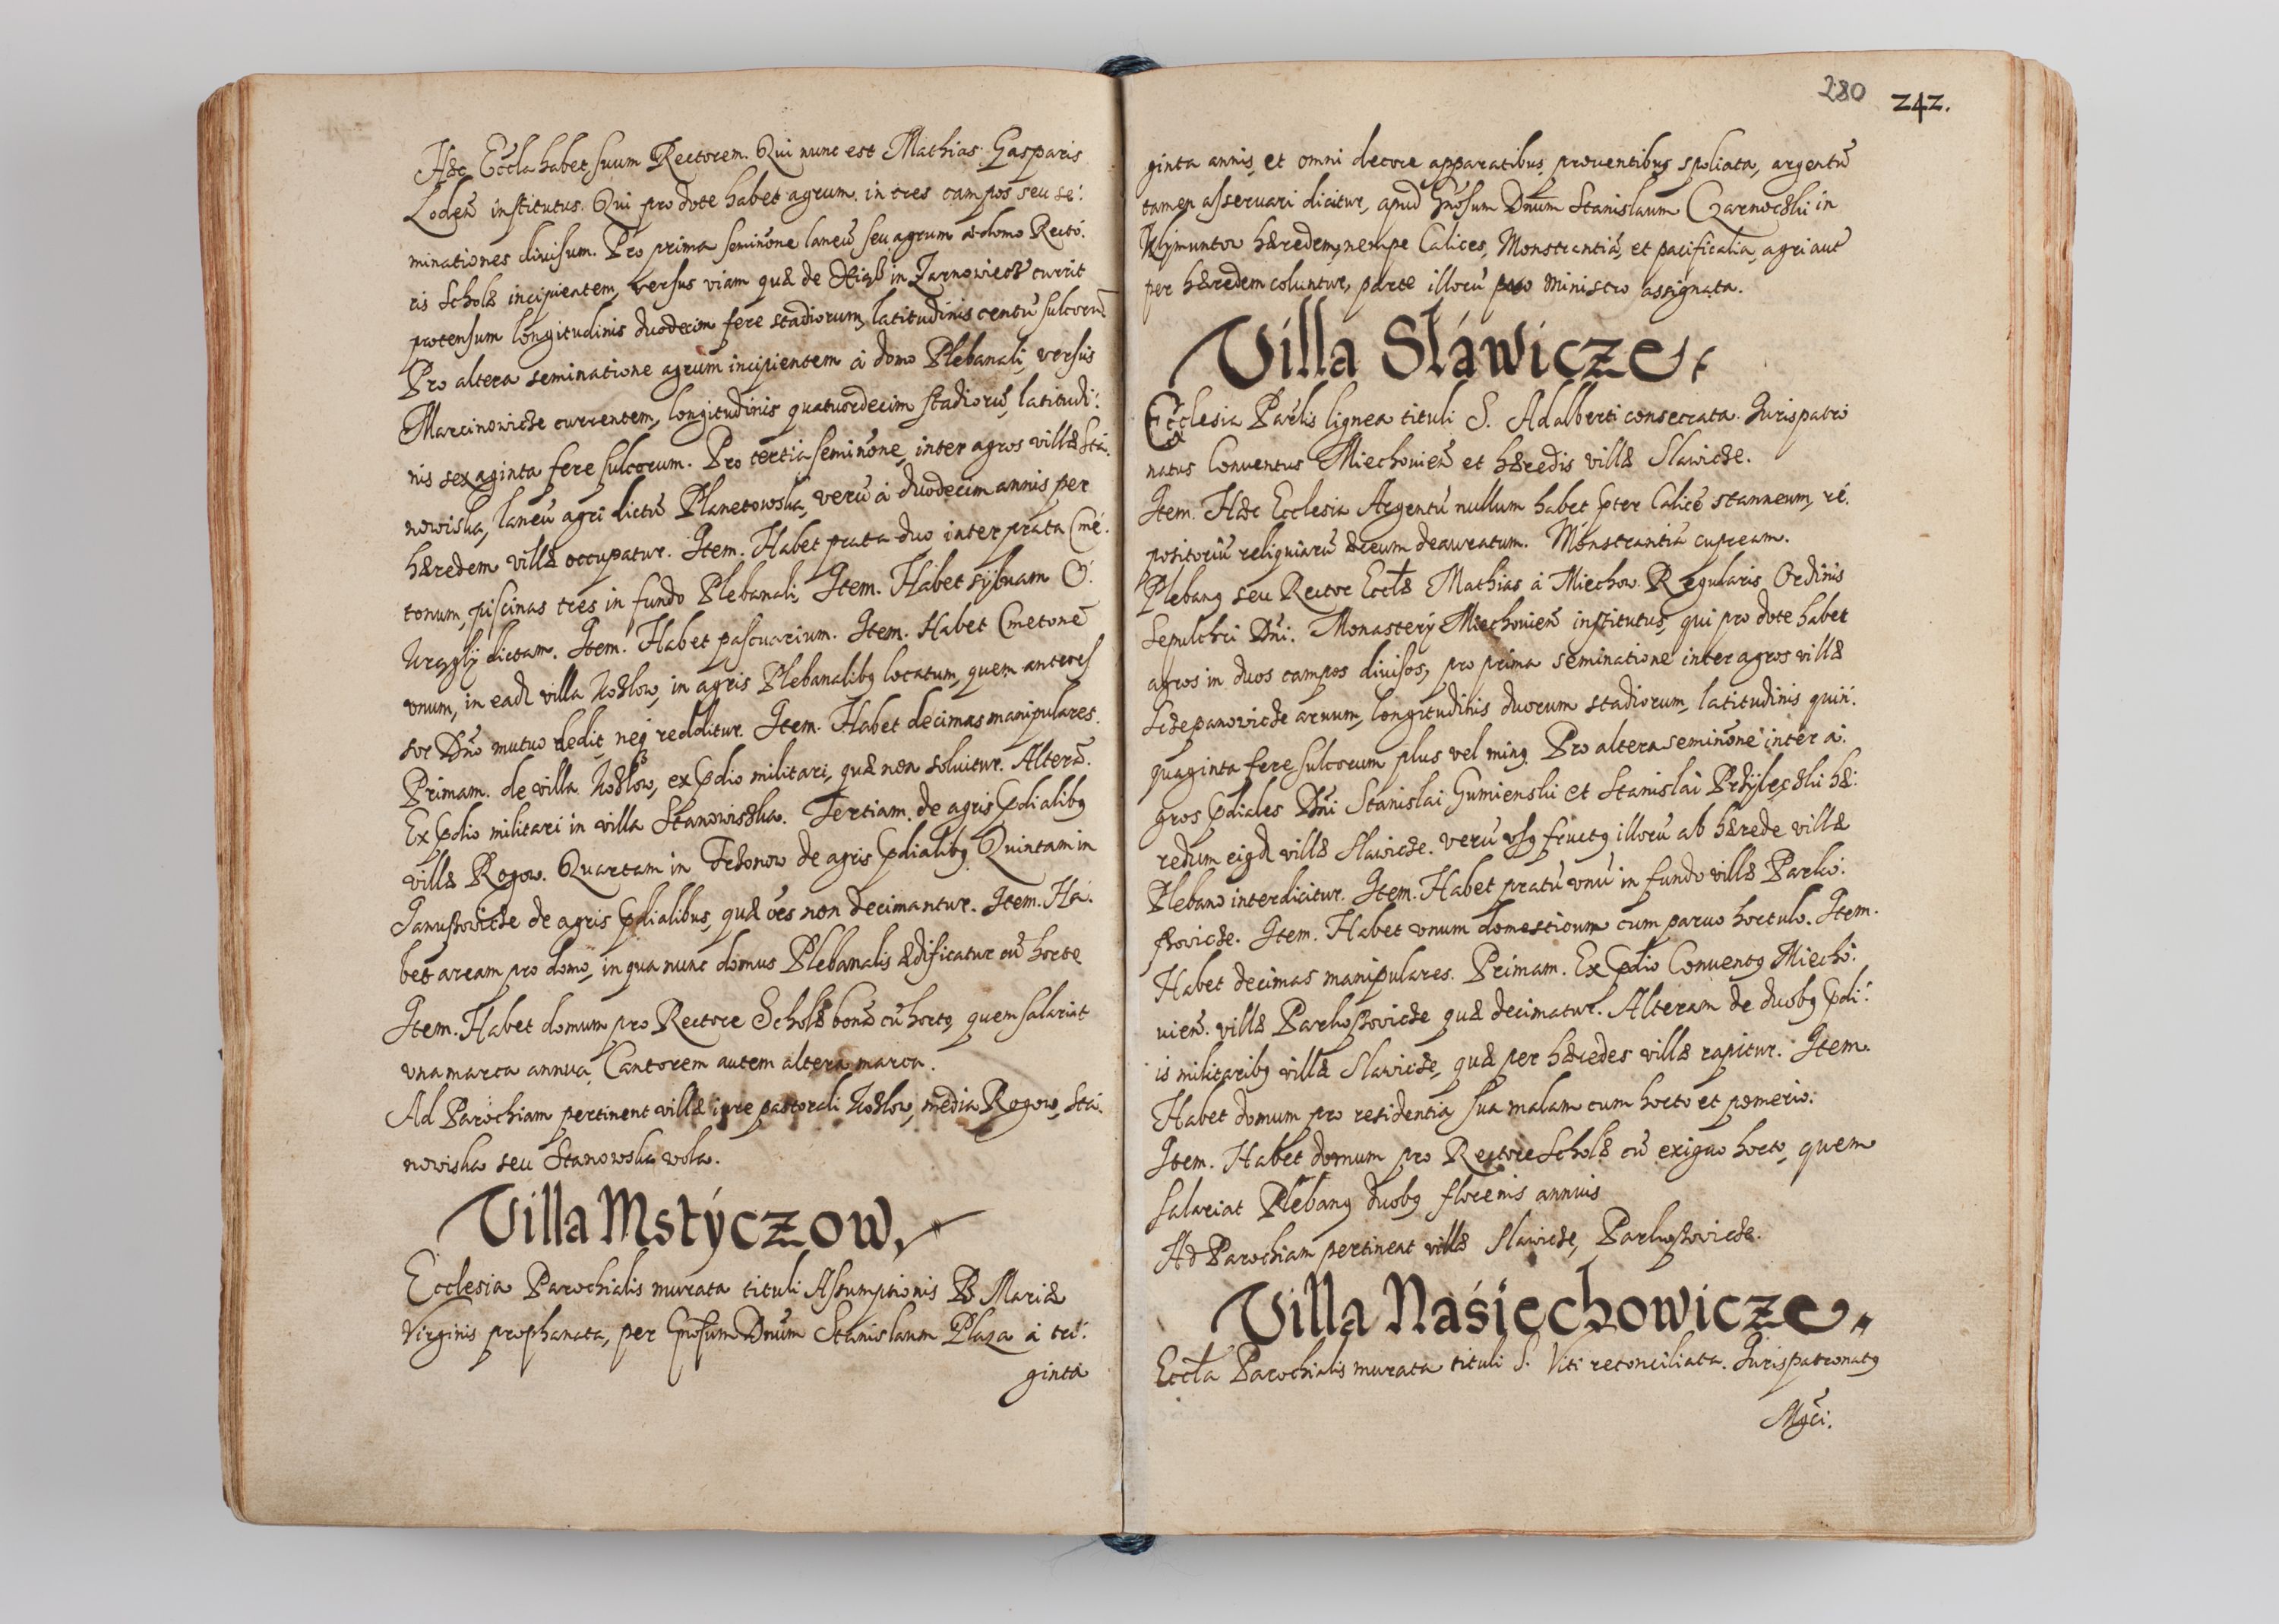 Hæc Eccla habet suum Rectorem. Qui nunc est Mathias Gasparis
Lodeñ institutus. Qui pro dote habet agrum in tres campos seu se:
minationes divisum. Pro prima seminõne laneũ seu agrum a domo Recto:
ris Scholæ incipientem, versus viam quæ de Xiąß in Zarnowiecz currit
protensum longitudinis duodecim fere stadiorum, latitudinis centũ sulcorũ
Pro altera seminatione agrum incipientem à domo Plebanali, versus
Marcinowicze currentem, longitudinis quatuordecim stadiorũ, latitudi:
nis sexaginta fere sulcorum. Pro tertia seminõne, inter agros villæ Sta:
nowiska, laneũ agri dictũ Planetowska, verũ à duodecim annis per
hæredem villæ occupatur. Item. Habet prata duo inter prata Cme:
tonum, piscinas tres in fundo Plebanali, Item. Habet sylvam O:
dictam. Item. Habet pascuarium. Item. Habet Cmetonẽ
vnum, in eadẽ villa Kozlow, in agris Plebanalibq locatum, quem anteces
sor Dño mutuo dedit, neq redditur. Item. Habet decimas manipulares.
Primam. de villa Kozlow, ex Pdio militari, quæ non soluitur. Alterã.
Ex Pdio militari in villa Stanowiszka. Tertiam. de agris Pdialibq
villæ Rogow. Quartam in Tczonow de agris Pdialibq. Quintam in
Janußowicze de agris Pdialibus, quæ oẽs non decimantur. Item. Ha:
bet aream pro domo, in qua nunc domus Plebanalis ædificatur cũ horto
Item. Habet domum pro Rectore Scholæ bonã cũ hortq quem salariat
vna marca annua, Cantorem autem altera marca.
Ad Parochiam pertinent villæ iure pastorali Kozlow, media Rogow, Sta:
nowiska seu Stanowska wola.
Villa Mstýczow
Ecclesia Parochialis murata tituli Assumptionis B Mariæ
Virginis prophanata, per Gñosum Dñum Stanislaum Plaza à tri:
ginta
280
242.
ginta annis, et omni decore apparatibus, prouentibus spoliata, argentũ
tamen asseruari dicitur, apud Gñosum Dñum Stanislaum Czarnoczki in
Klymuntow hæredem, nempe Calices, Monstrantiã, et pacificalia, agri autẽ
per hæredem coluntur, parte illorũ pro Ministro assignata.
Villa Sláwicze
Ecclesia Parlis lignea tituli S. Adalberti consecrata. Jurispatro
natus Conventus Miechouieñ et hæredis villæ Slawicze.
Item. Hæc Ecclesia Argentũ nullum habet Pter Calicẽ stanneum, re:
positoriũ reliquiarũ æreum deauratum. Monstrantiã cupream.
Plebanq seu Rector Ecclæ Mathias à Miechow. Regularis Ordinis
Sepulchri Dñi. Monastery Miechouieñ institutus, qui pro dote habet
agros in duos campos divisos, pro prima seminatione inter agros villæ
Sczepanowicze aruum, longitudinis duorum stadiorum, latitudinis quin:
quaginta fere sulcorum plus vel minq. Pro altera seminõne inter a:
gros Pdiales Dñi Stanislai Gumienski et Stanislai Przyłęczki hæ:
redum eiqd villæ Slawicze. verũ vsq fructq illorũ ab hærede villæ
Plebano interdicitur. Item. Habet pratũ vnũ in fundo villæ Parko:
ßowicze. Item. Habet vnum domesticum cum paruo hortulo. Item.
Habet decimas manipulares. Primam. Ex Pdio Conventq Miecho:
uieñ. villæ Parkoßowicze quæ decimatur. Alteram de duobq Pdi:
is militaribq villæ Slawicze, quæ per hæredes villæ rapitur. Item.
Habet domum pro residentia sua malam cum horto et pomerio.
Item. Habet domum pro Rectore Scholæ cũ exiguo horto, quem
salariat Plebanq duobq florenis annuis
Ad Parochiam pertinent villæ Slawicze, Parkoßowicze.
Villa Naśiechowicze
Eccla Parochialis murata tituli S. Viti reconciliata. Jurispatronatq
Mgci.